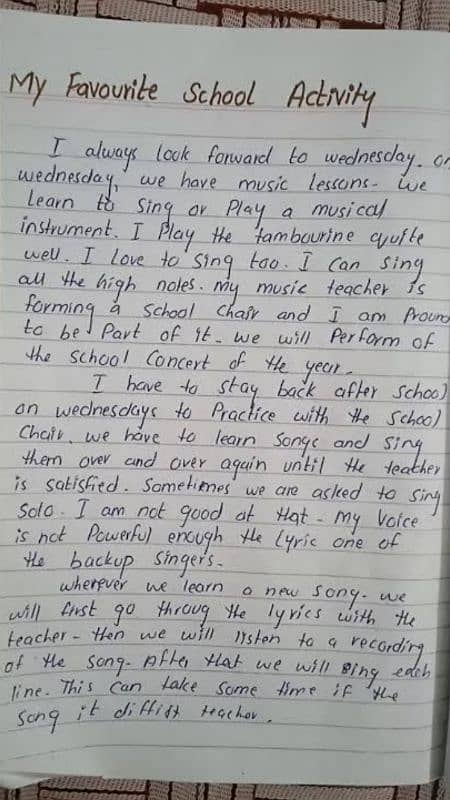 My Favourite School Activity
I always look forward to wednesday. on
wednesday, we have music lessons. we
learn to sing or Play a musical
instrument. I Play the tambourine quite
well. I love to sing too. I can sing
all the high notes. my music teacher is
forming a School Chair and I am Proud
to be Part of it. we will Perform of
the school Concert of the year.
I have to stay back after School
on wednesdays to Practice with the School
Chair. we have to learn Songs and Sing
them over and over again until the teacher
is satisfied. Sometimes we are asked to sing
Solo. I am not good at that. my Voice
is not Powerful enough the Lyric one of
the backup singers.
wherever we learn a new song. we
will first go throug the lyrics with the
teacher - then we will listen to a recording
of the song. After that we will sing each
line. This can take some time if the
song it diffist teachor.